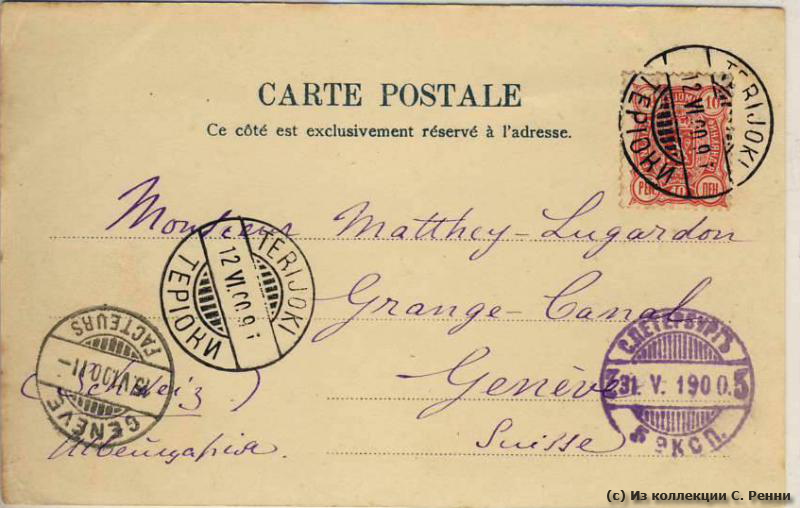 CARTE POSTALE
Ce côté est exclusivement réservé à l'adresse.
TERIJOKI
12 VI.00.9
ТЕРІОКИ
10
10
ПЕН
Monsieur Matthey-Lugardon
Grange-Canal
Genève
Suisse
(Schweiz)
Швейцарія.
TERIJOKI
12 VI.00.9
ТЕРІОКИ
FACTEURS
VI.00.11-
GENÈVE
С.ПЕТЕРБУРГЪ
31. V. 1900.
5 ЭКСП.
(c) Из коллекции С. Ренни